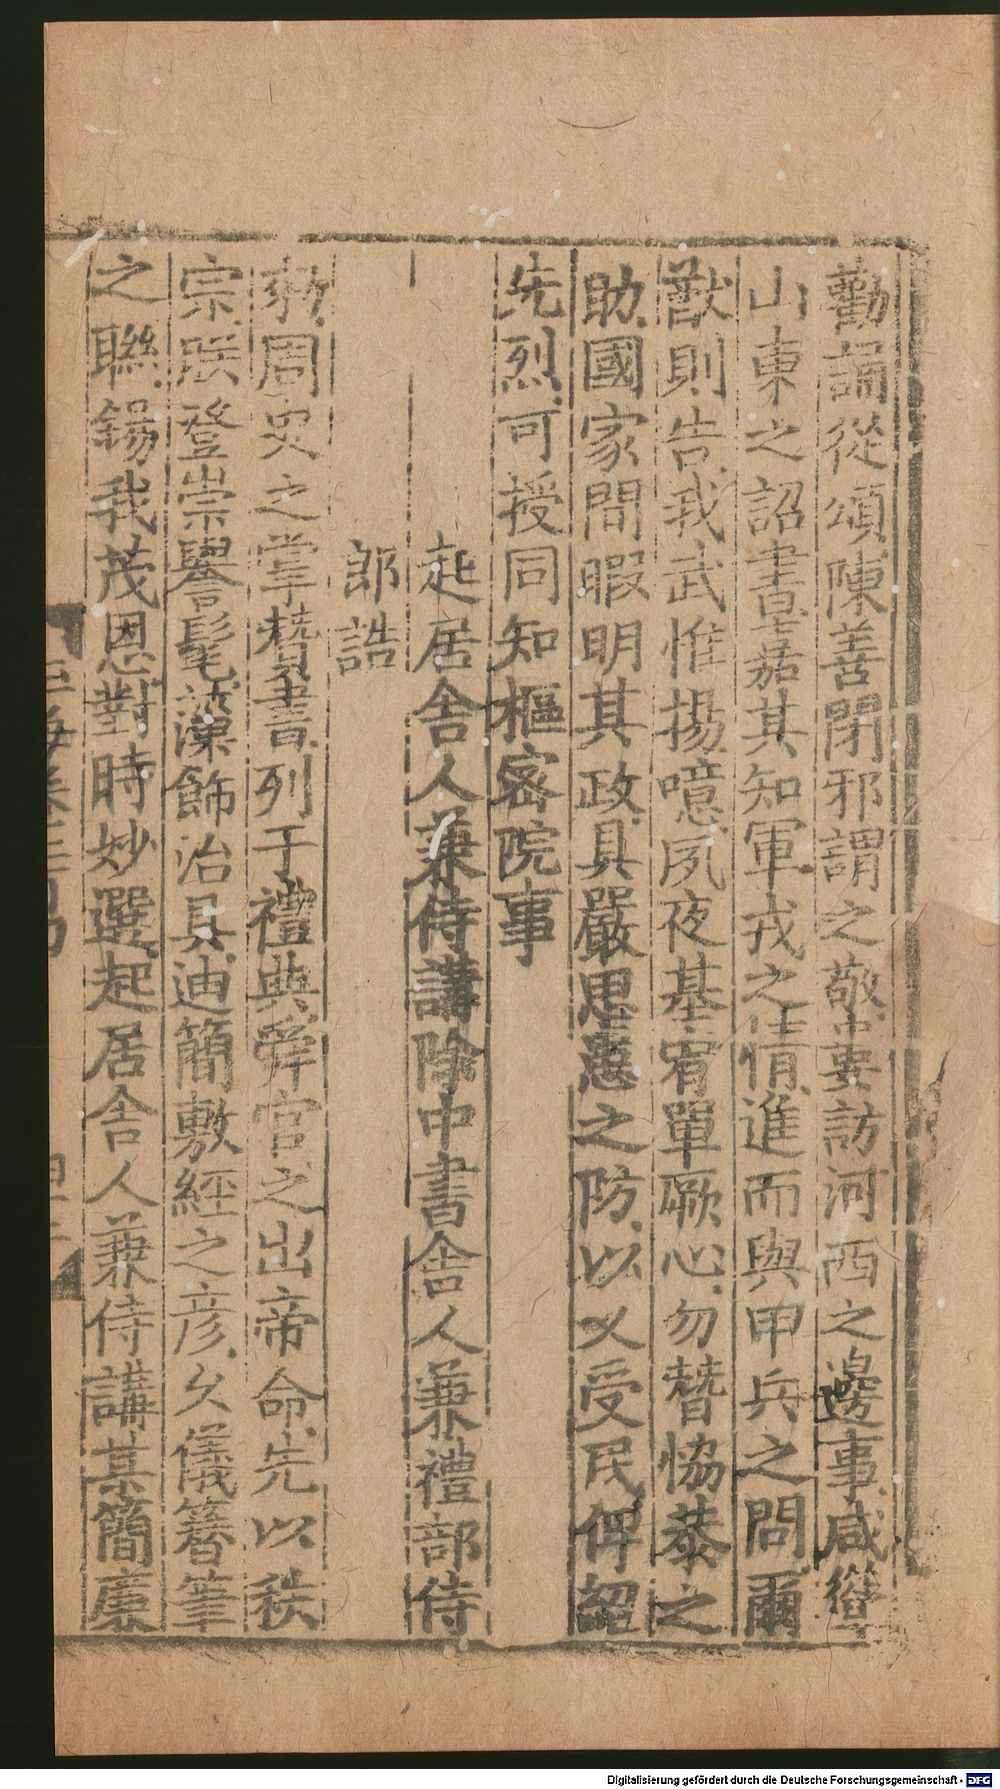 勸誦從頌陳善閉邪謂之敬妻訪河西之邊事咸從
山東之詔書嘉其知軍戎之情進而與甲兵之問爾
猷則告我武惟揚噫夙夜基宥單厥心勿替恊恭之
助國家閒暇明其政具嚴思患之防以乂受民俾紹
先烈可授同知樞密院事
起居舍人兼侍講除中書舍人兼禮部侍
郎誥
敕周史之掌贊書列于禮典舜官之出帝命先以秩
宗朕登崇譽髦藻飾治具迪簡敷經之彦久儀簪筆
之聯錫我茂恩對時妙選起居舍人兼侍講某簡廉
Digitalisierung gefördert durch die Deutsche Forschungsgemeinschaft - DFG